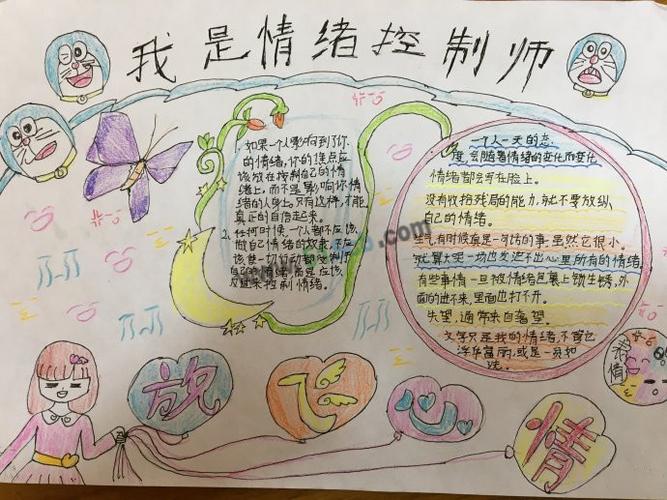 我是情绪控制师
1. 如果一个人影响到了你
的情绪,你的焦点应
该放在控制自己的情
绪上,而不是影响你情
绪的人身上。只有这样,才能
真正的自信起来。
2、任何时候,一个人都不应该
做自己情绪的奴隶,不应
该使一切行动都受制于
自己的情绪,而是应该
反过来控制情绪。
一个人一天的态
度,会随着情绪的变化而变化
情绪都会写在脸上。
没有收拾残局的能力,就不要放纵
自己的情绪。
生气有时候真是一可访的事,虽然它很小。
就算大哭一场也发泄不出心里所有的情绪
有些事情一旦被情绪包裹上锁生锈,外
面的进不来,里面也打不开。
失望,通常来自奢望。
文字只是我的情绪,不管它
浮华富丽,或是一贫如
洗。
表情
放飞心情